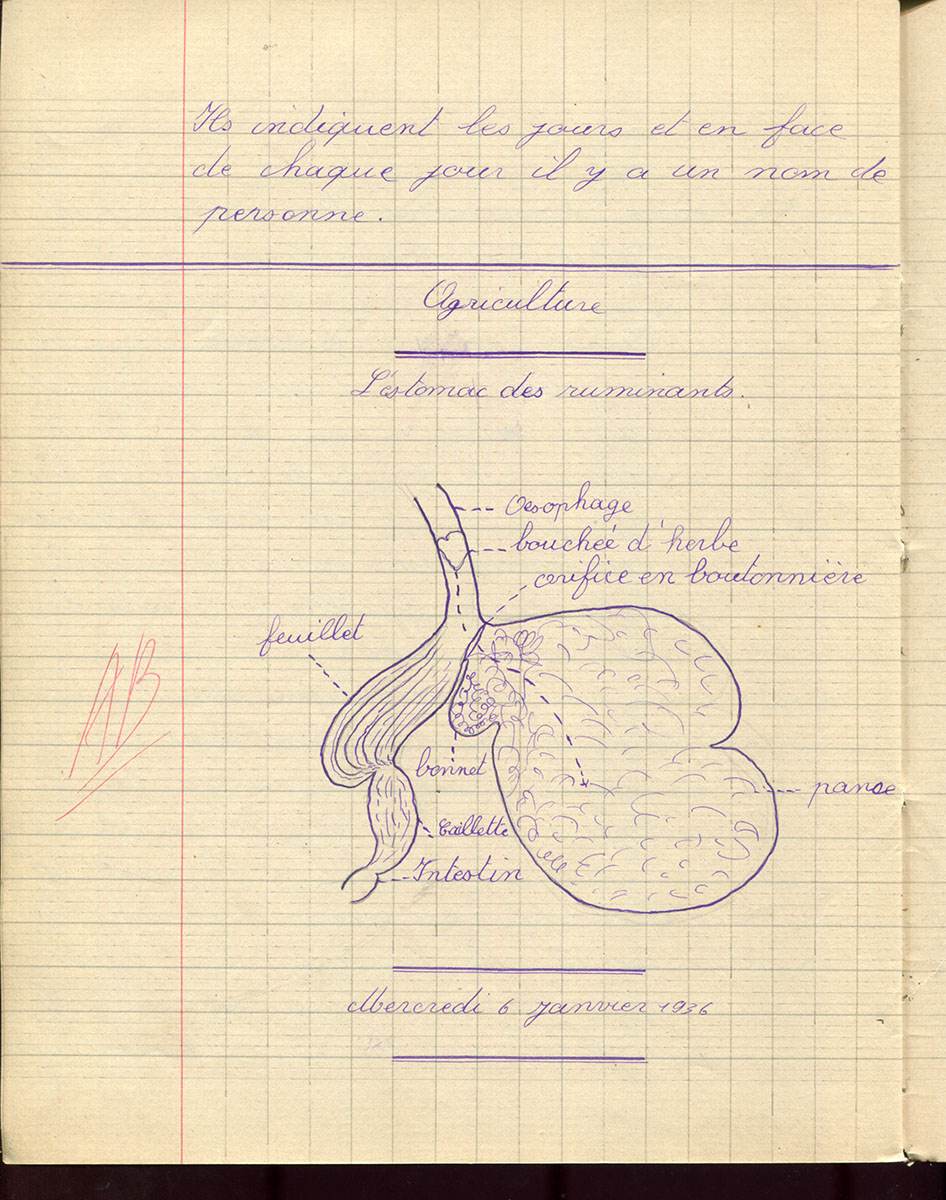 Ils indiquent les jours et en face
de chaque jour il y a un nom de
personne.
Agriculture
L'estomac des ruminants.
Oesophage
bouchée d'herbe
orifice en boutonnière
feuillet
AB
bonnet
panse
Caillette
Intestin
Mercredi 6 janvier 1936